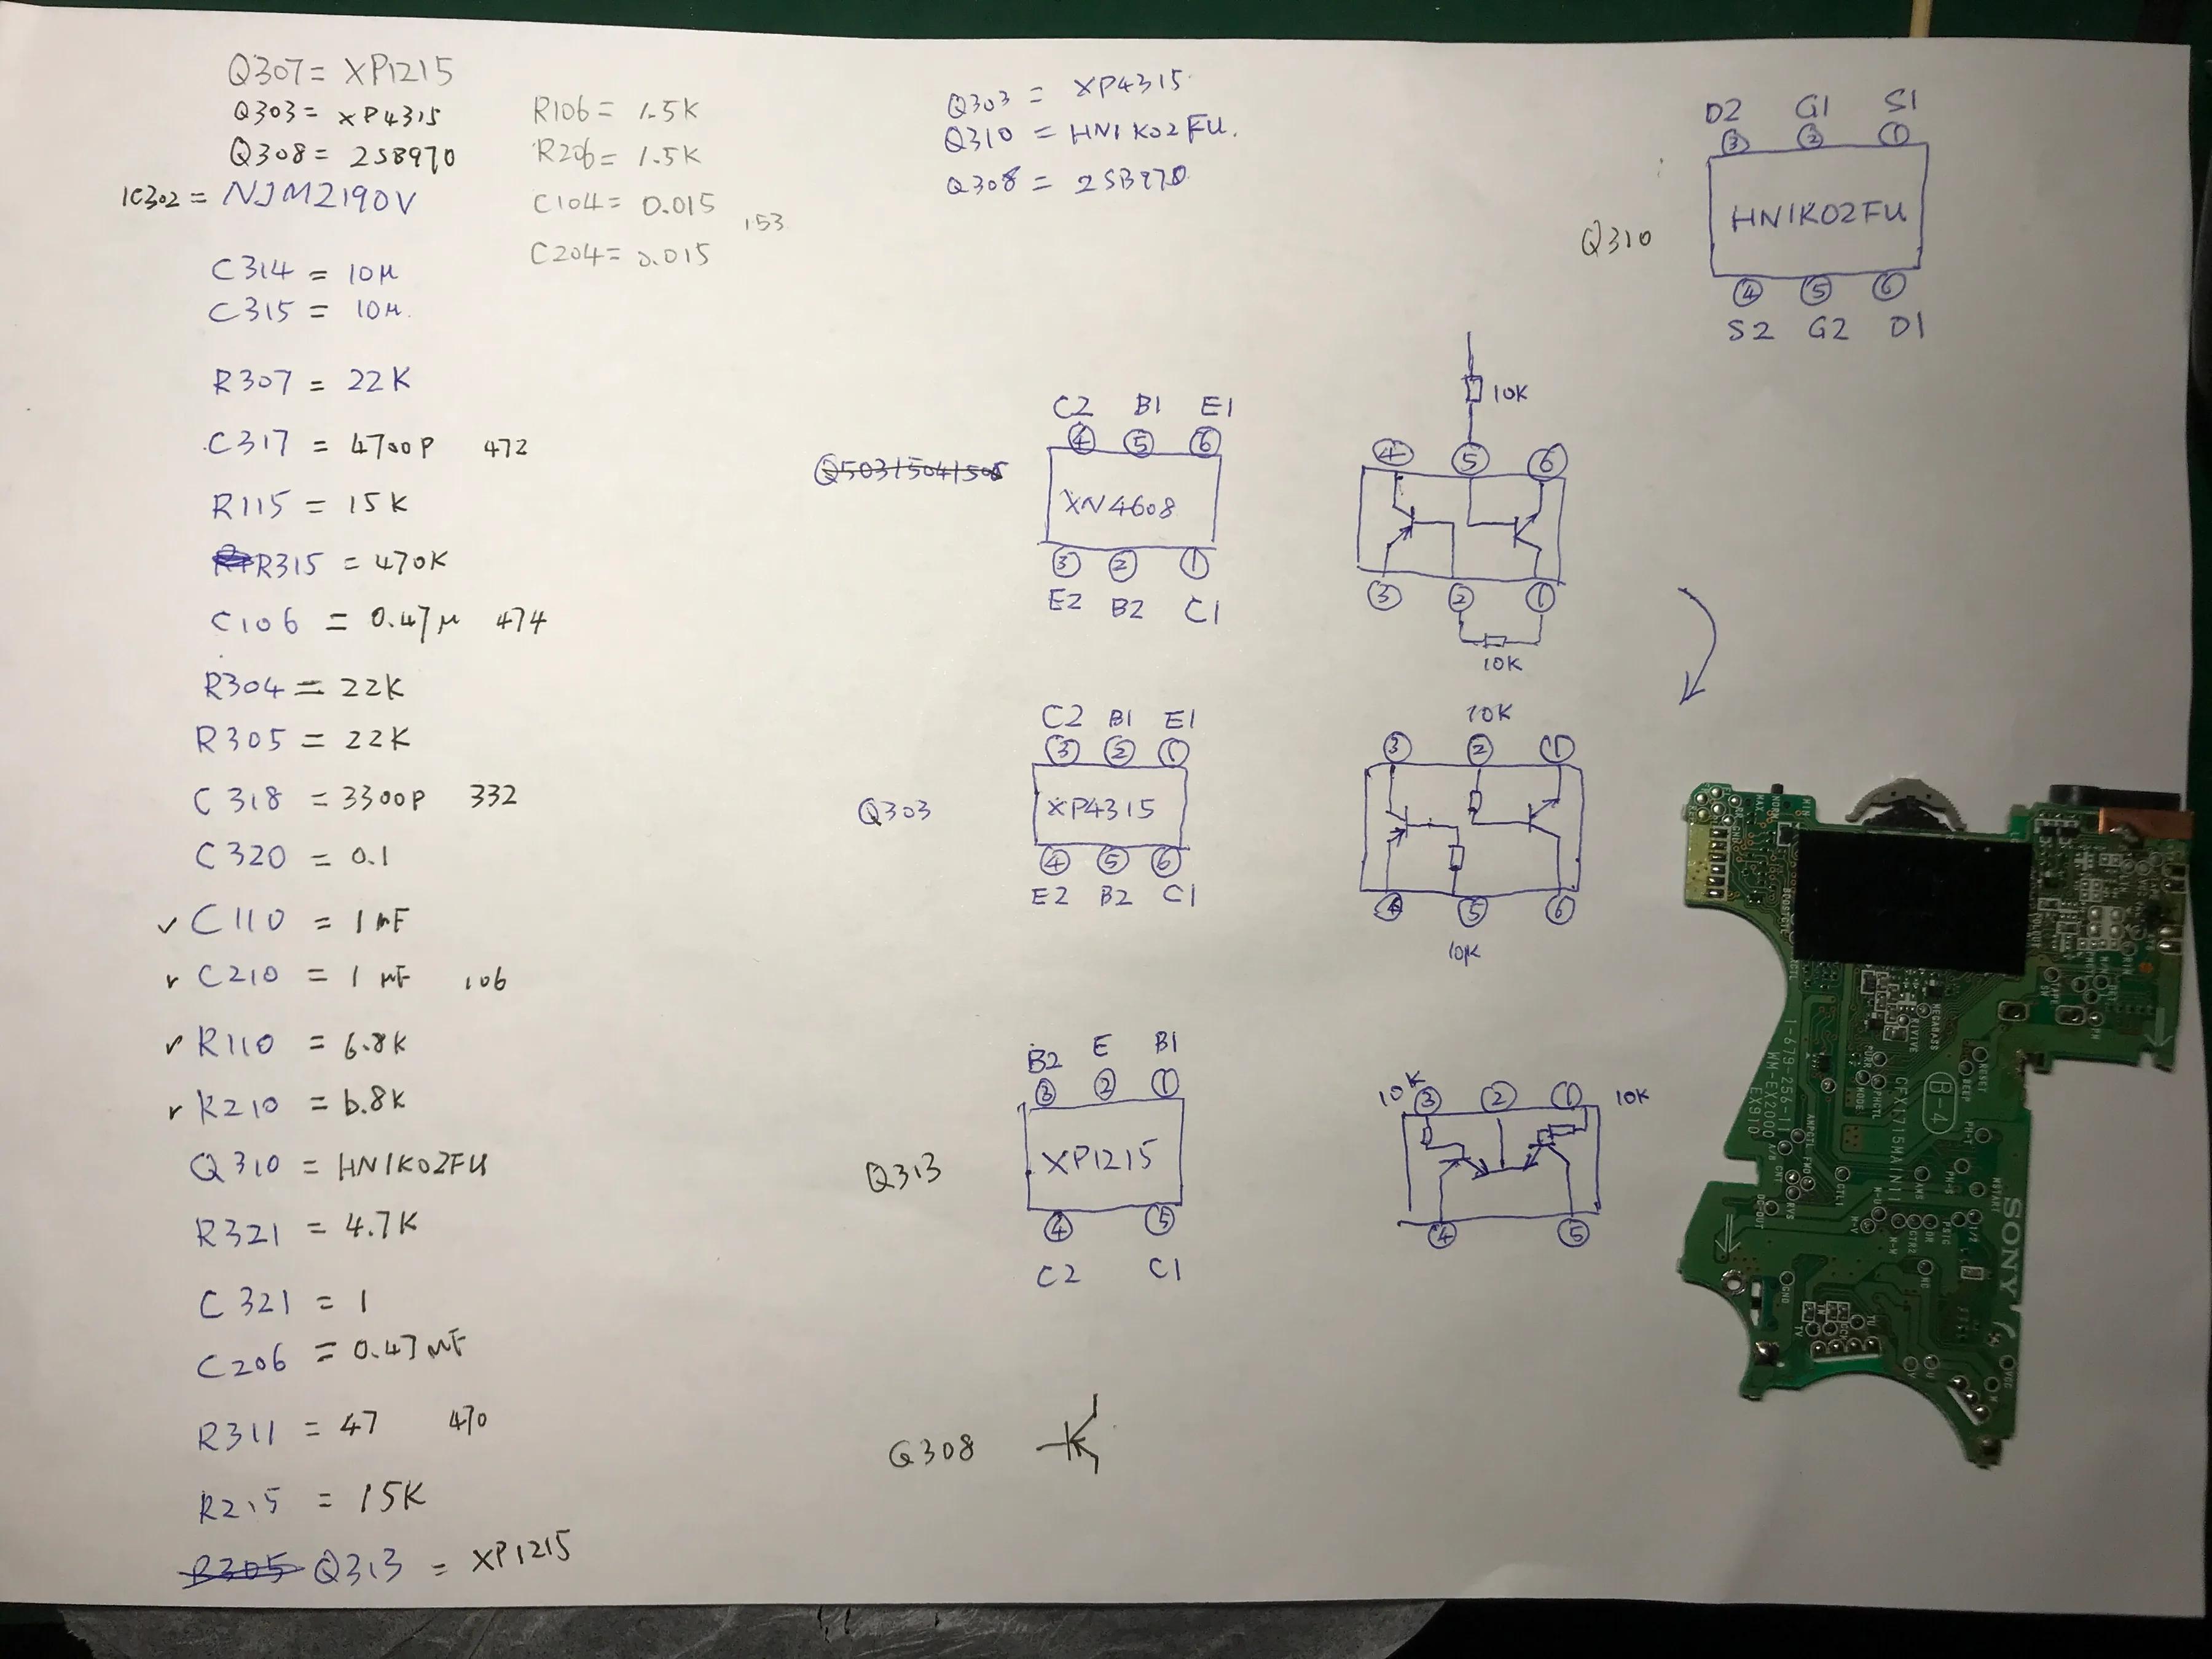 Q307 = XP1215
Q303 = XP4315
Q308 = 2SB970
IC302 = NJM2190V
C314 = 10μ
C315 = 10μ.
R307 = 22K
C317 = 4700P 472
R115 = 15K
R315 = 470K
C106 = 0.47μ 474
R304 = 22K
R305 = 22K
C318 = 3300P 332
C320 = 0.1
✓ C110 = 1μF
✓ C210 = 1μF 106
✓ R110 = 6.8K
✓ R210 = 6.8K
Q310 = HN1K02FU
R321 = 4.7K
C321 = 1
C206 = 0.47μF
R311 = 47 470
R215 = 15K
R305 Q313 = XP1215
R106 = 1.5K
R206 = 1.5K
C104 = 0.015
153
C204 = 0.015
Q303 = XP4315
Q310 = HN1K02FU.
Q308 = 2SB970
D2 G1 S1
③ ② ①
Q310
HN1K02FU
④ ⑤ ⑥
S2 G2 D1
C2 B1 E1
④ ⑤ ⑥
Q503/504/505
XN4608
③ ② ①
E2 B2 C1
10K
④ ⑤ ⑥
③ ② ①
10K
C2 B1 E1
③ ② ①
Q303
XP4315
④ ⑤ ⑥
E2 B2 C1
10K
③ ② ①
④ ⑤ ⑥
10K
B2 E B1
③ ② ①
Q313
XP1215
④ ⑤
C2 C1
10K ③ ② ① 10K
④ ⑤
Q308
MAX
NORM
MEGABASS
RESET
BEEP
MODE
B-4
1-679-256-11
WM-EX2000
EX910
CFX1715MAIN11
PH-T
PH-S
SONY
GND
NC
VCC